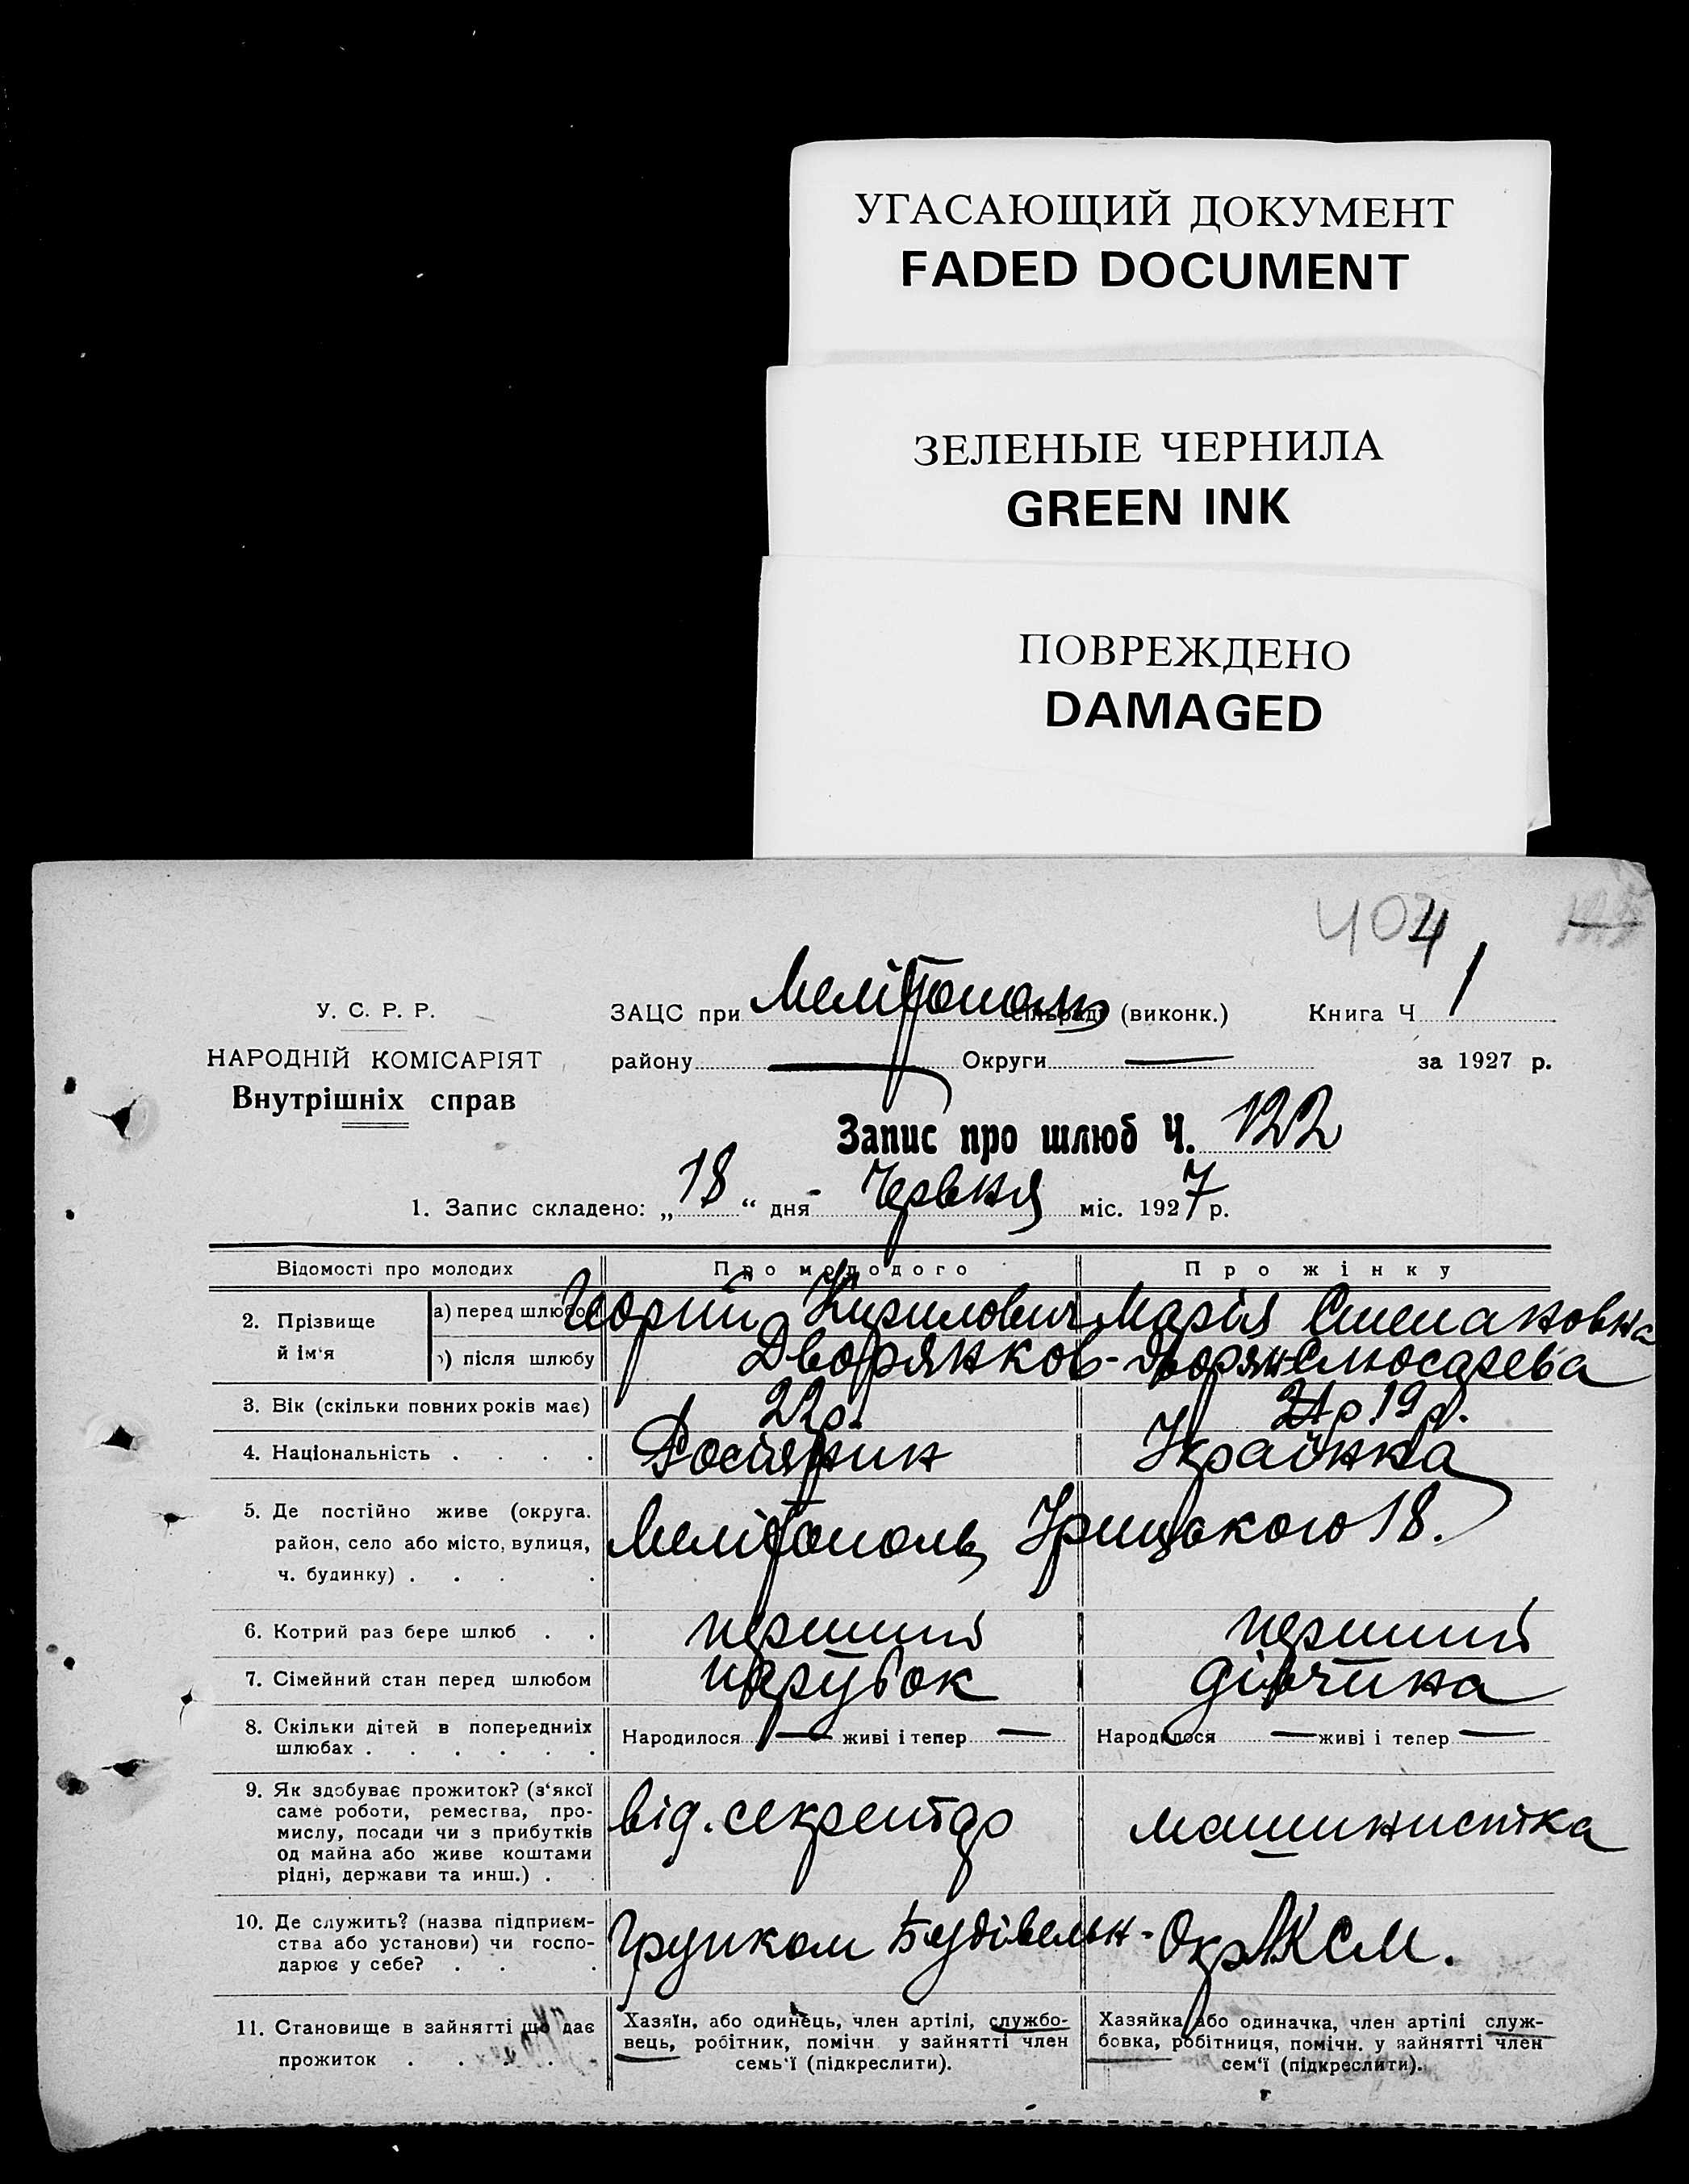 УГАСАЮЩИЙ ДОКУМЕНТ
FADED DOCUMENT
ЗЕЛЕНЫЕ ЧЕРНИЛА
GREEN INK
ПОВРЕЖДЕНО
DAMAGED
404
У. С. Р. Р.
НАРОДНІЙ КОМІСАРІЯТ
Внутрішніх справ
ЗАЦС при Мелітополь сільраді (виконк.) Книга Ч 1
району — Округи — за 1927 р.
Запис про шлюб Ч. 122
1. Запис складено: „ 18 “ дня Червня міс. 1927 р.
Відомості про молодих Про молодого Про жінку
2. Прізвище й ім‘я
а) перед шлюбом Георгий Кирилович Марія Степановна
б) після шлюбу Дворянков - Дворян-Слюсарева
3. Вік (скільки повних років має) 22 р. 19 р.
4. Національність . . . . Росіянин Українка
5. Де постійно живе (округа.
район, село або місто, вулиця,
ч. будинку) . . . . Мелітополь Урицького 18.
6. Котрий раз бере шлюб . . перший перший
7. Сімейний стан перед шлюбом парубок дівчина
8. Скільки дітей в попередниіх
шлюбах . . . . . . Народилося — живі і тепер — Народилося — живі і тепер —
9. Як здобуває прожиток? (з‘якої
саме роботи, ремества, про-
мислу, посади чи з прибутків
од майна або живе коштами
рідні, держави та инш.) . . від. секретар машинистка
10. Де служить? (назва підприєм-
ства або установи) чи госпо-
дарює у себе? . . . Групком Будівельн- ОкрЛКСМ.
11. Становище в зайнятті що дає
прожиток . . . .
Хазяїн, або одинець, член артілі, службо-
вець, робітник, помічн у зайнятті член
семь‘ї (підкреслити).
Хазяйка або одиначка, член артілі служ-
бовка, робітниця, помічн. у зайнятті член
сем‘ї (підкреслити).